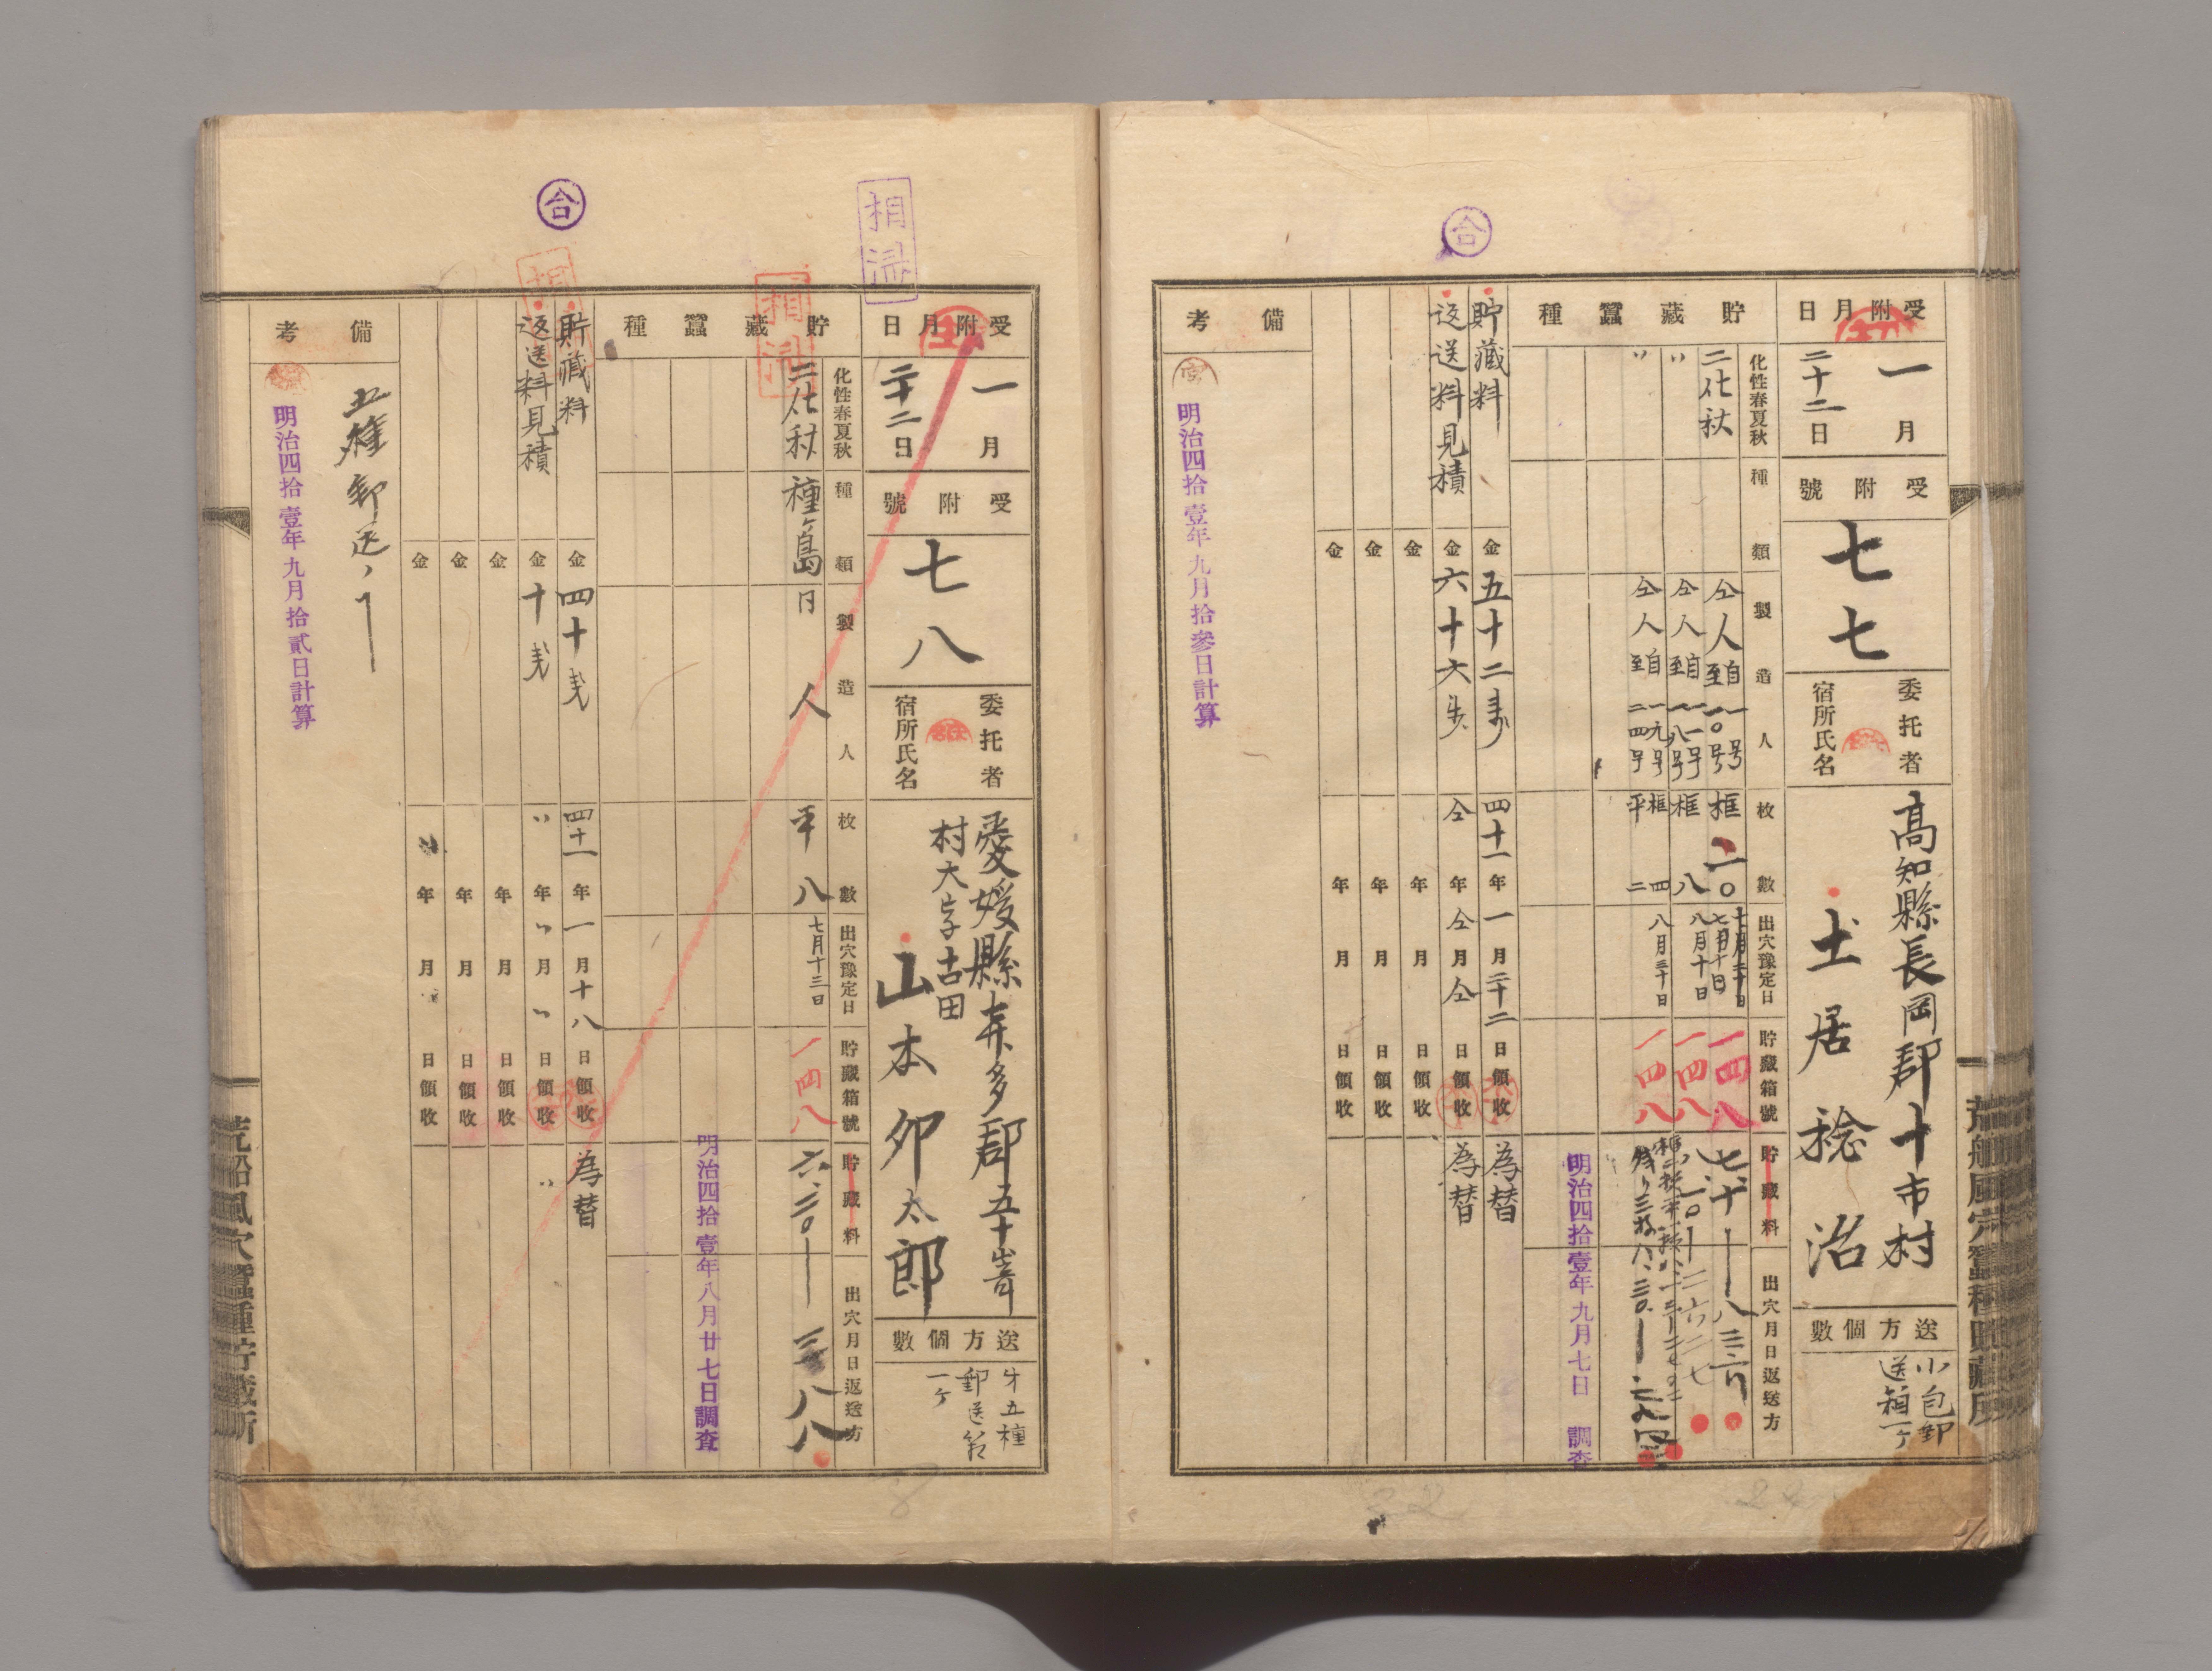 合
受附月日
一月
二十二日
受附號
七七
委托者
宿所氏名
高知縣長岡郡十市村
土居稔治
送方個數
小包郵
送箱一ケ
貯藏蠶種
化性春夏秋
種類
製造人
枚數
出穴豫定日
貯藏箱號
貯藏料
出穴月日返送方
二化秋
仝人自一号
至一〇号
框
一〇
七月二十日
七月十日
一四八
〃
仝人自一一号
至一八号
框
八
八月十日
一四八
〃
仝人自一九号
至二四号
框四
平二
八月三十日
一四八
明治四拾壹年九月七日 調査
貯藏料
金五十二銭
四十一年一月二十二日領收
為替
返送料見積
金六十六銭
仝年仝月仝日領收
為替
金
年月日領收
金
年月日領收
金
年月日領收
備考
明治四拾壹年九月拾參日計算
荒船風穴蠶種貯藏所
合
相濟
相濟
相濟
受附月日
一月
二十二日
受附號
七八
委托者
宿所氏名
愛媛縣喜多郡五十崎
村大字古田
山本卯太郎
送方個數
才五種
郵送箱
一ケ
貯藏蠶種
化性春夏秋
種類
製造人
枚數
出穴豫定日
貯藏箱號
貯藏料
出穴月日返送方
二化秋
種島
日
人
平八
七月十三日
一四八
明治四拾壹年八月廿七日調査
貯藏料
金四十銭
四十一年一月十八日領收
為替
返送料見積
金十銭
〃年〃月〃日領收
〃
金
年月日領收
金
年月日領收
金
年月日領收
備考
五種郵送
明治四拾壹年九月拾貳日計算
荒船風穴蠶種貯藏所